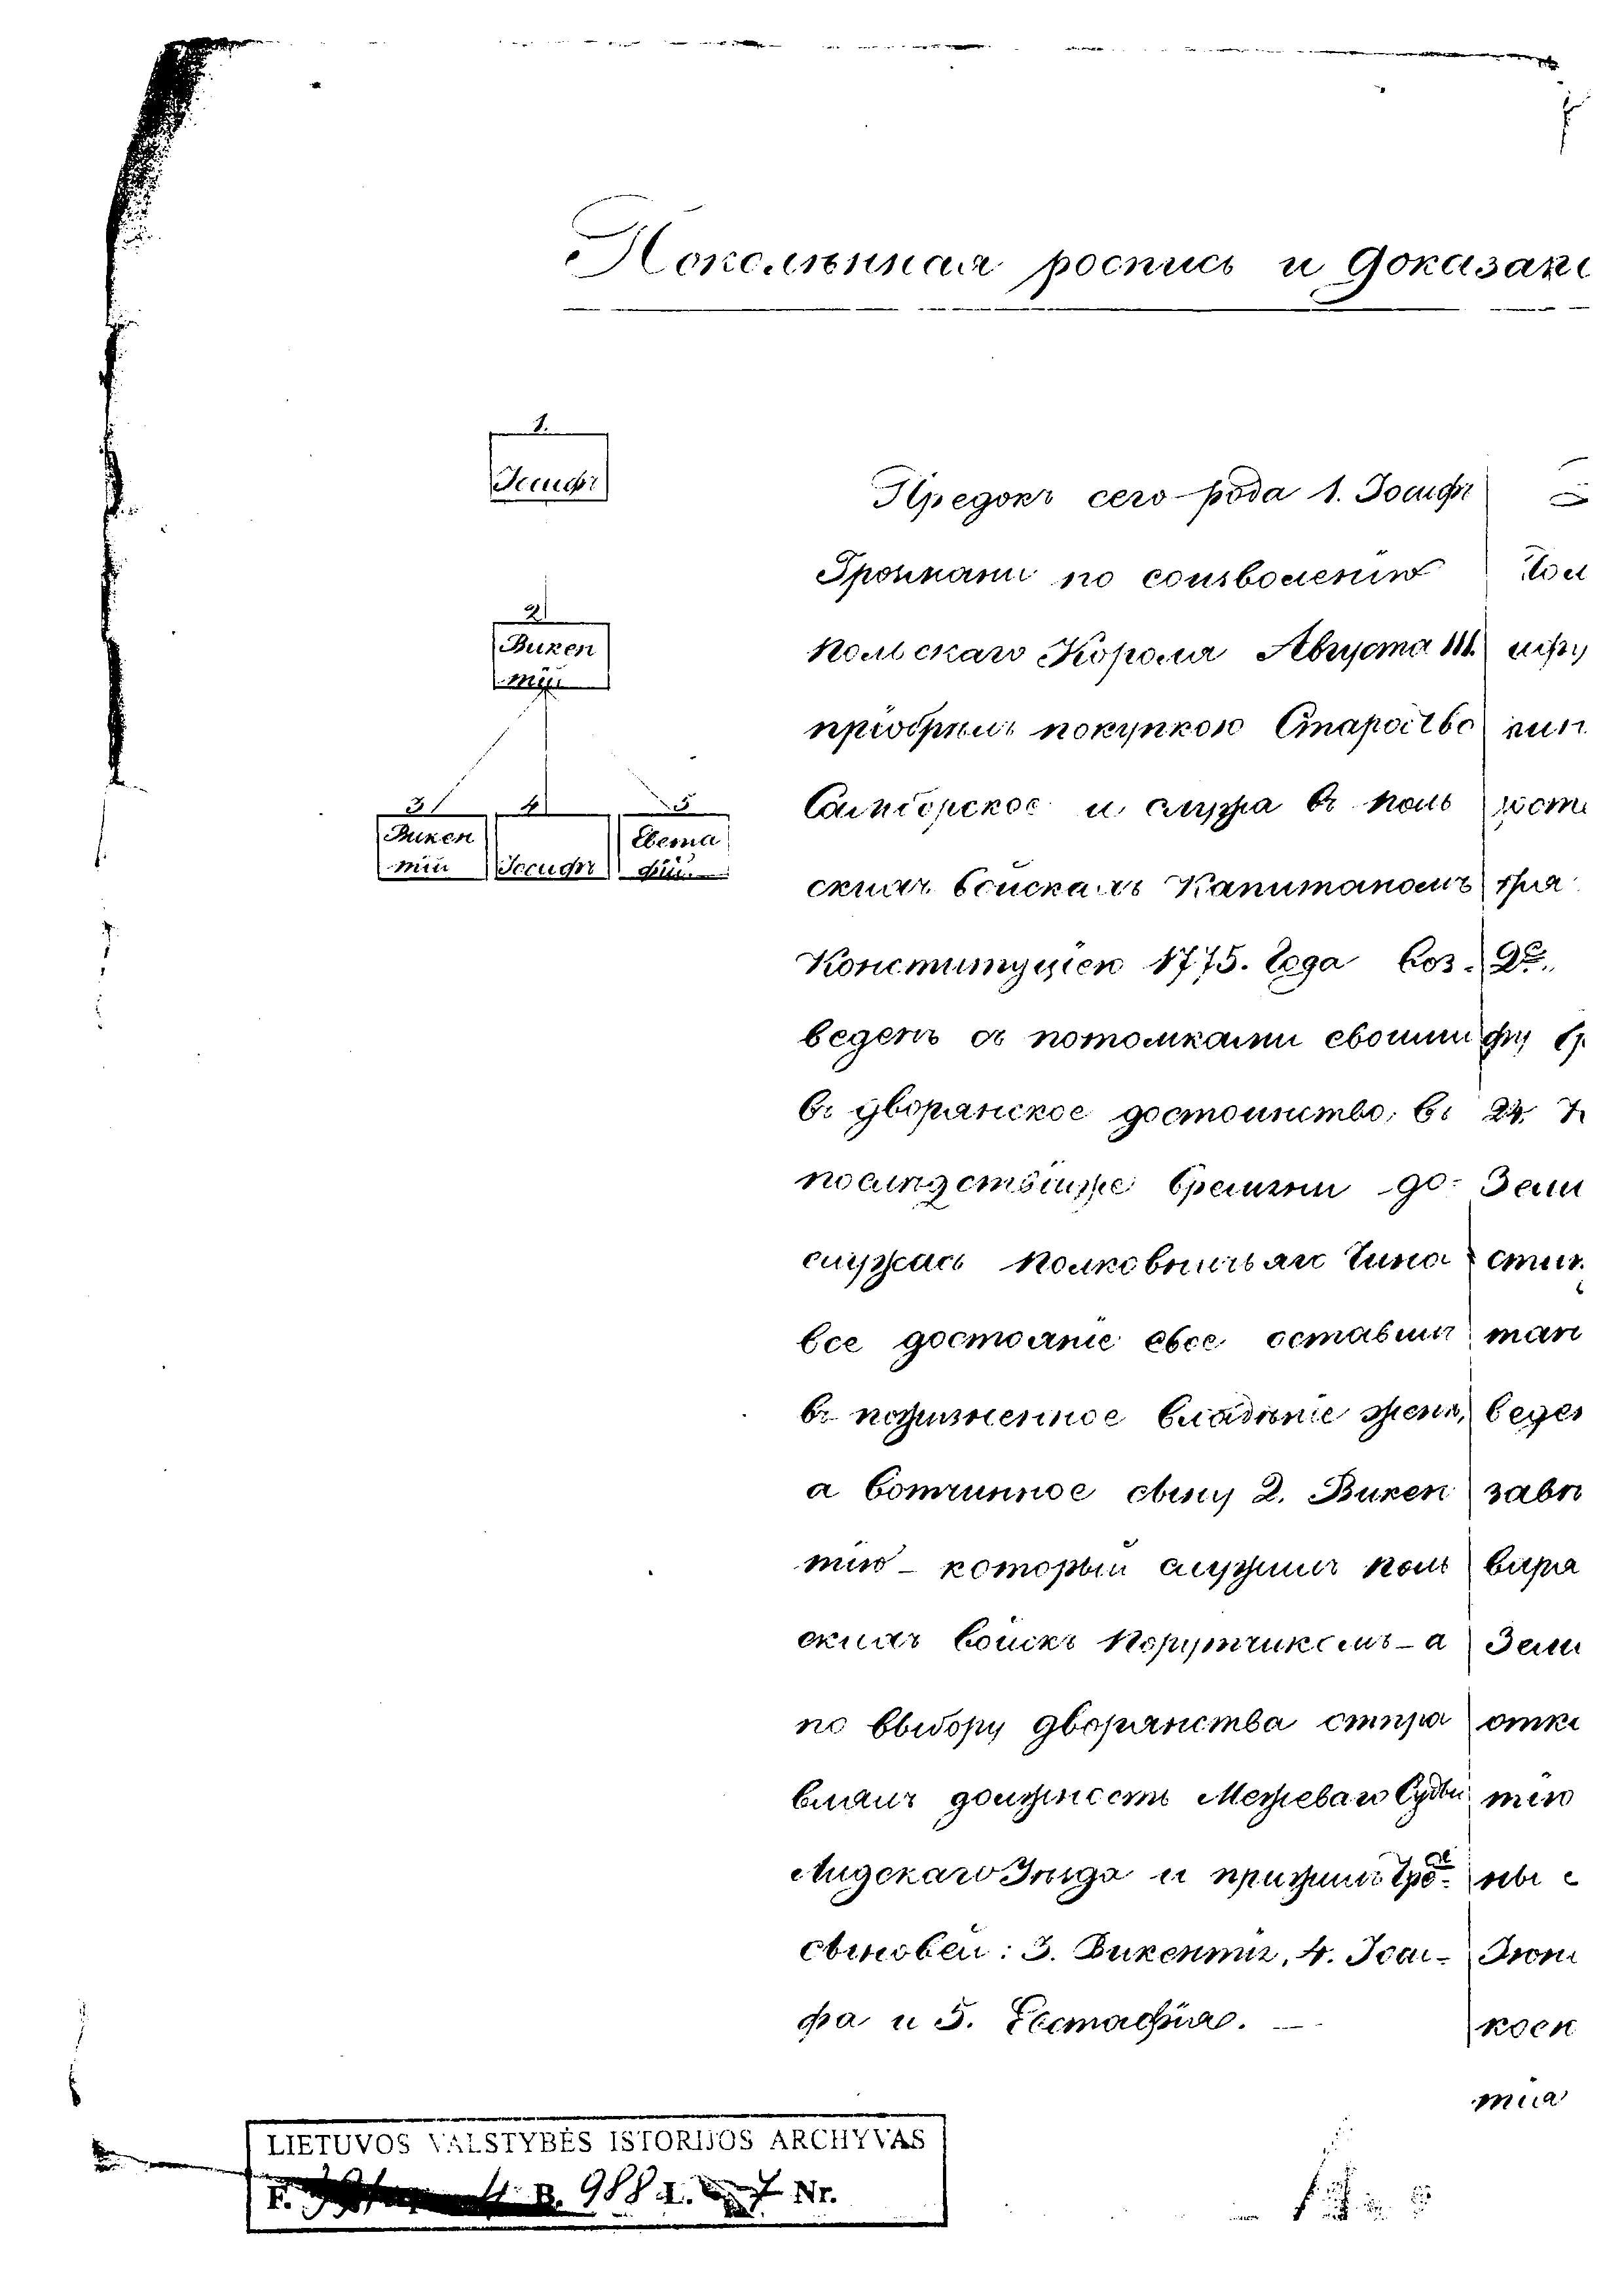 Поколѣнная роспись и доказан
1.
Іосифъ
2
Викен
тій
3 4 5
Викен
тій
Іосифъ
Евста
фій.
Предокъ сего рода 1. Іосифъ
по соизволенію
Польскаго Короля Августа III.
пріобрѣлъ покупкою Староство
и служа въ Поль
скихъ войскахъ Капитаномъ
Конституціею 1775. Года воз-
веденъ съ потомками своими
въ дворянское достоинство, въ
послѣдствіиже времени до-
служась Полковничьяго Чина
все достояніе свое оставилъ
въ пожизненное владѣніе жены,
а вотчинное сыну 2. Викен
тію - который служилъ Поль
скихъ войскъ Порутчикомъ - а
по выбору дворянства отпра
влялъ должность Межеваго Судьи
Лидскаго и прижилъ трехъ
сыновей: 3. Викентія, 4. Іоси-
фа и 5. Евстафія. —
24.
Земл
тан
веден
Земл
тію
ны с
тіа
LIETUVOS VALSTYBĖS ISTORIJOS ARCHYVAS
F. 4 B. 988 L. 7 Nr.